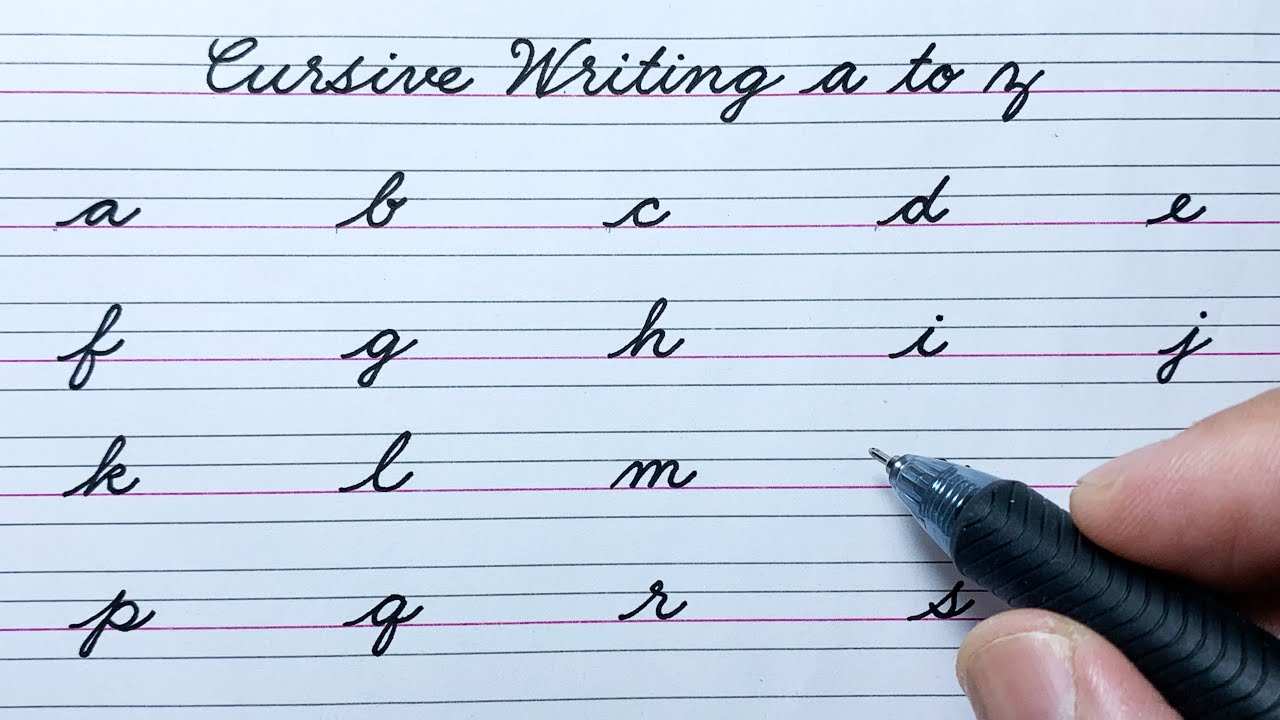 Cursive Writing a to z
a b c d e
f g h i j
k l m
p q r s